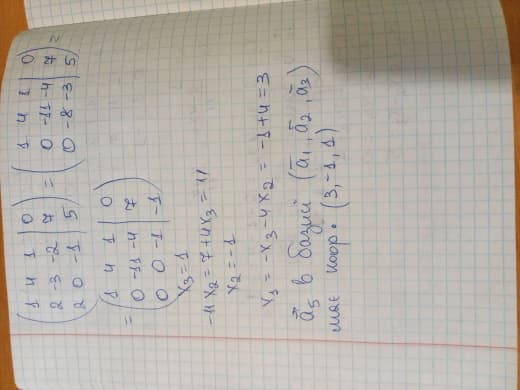 (1 4 1 | 0) = (1 4 1 | 0) =
(2 -3 -2 | 7) (0 -11 -4 | 7)
(2 0 -1 | 5) (0 -8 -3 | 5)
= (1 4 1 | 0)
(0 -11 -4 | 7)
(0 0 -1 | -1)
x₃ = 1
-11x₂ = 7+4x₃ = 11
x₂ = -1
x₁ = -x₃-4x₂ = -1+4 = 3
a⃗₅ в базисі (a̅₁, a̅₂, a̅₃)
має коор. (3, -1, 1)